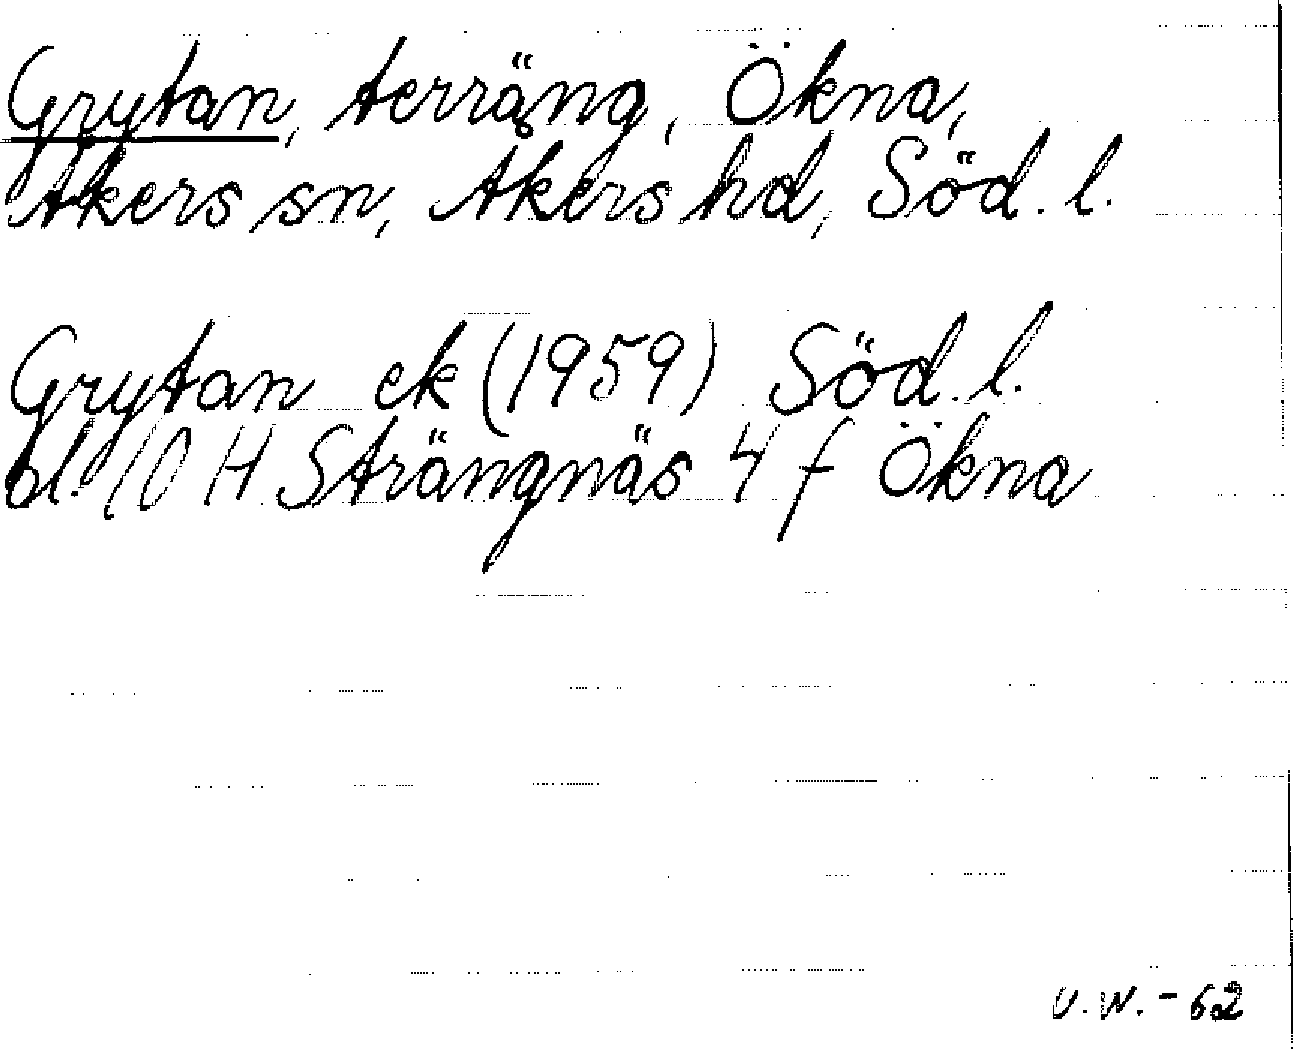 Grytan, terräng, Ökna,
Åkers sn, Åkers hd, Söd. l.
Grytan ek (1959) Söd. l.
bl. 10 H Strängnäs 4 f Ökna
U.W. - 62